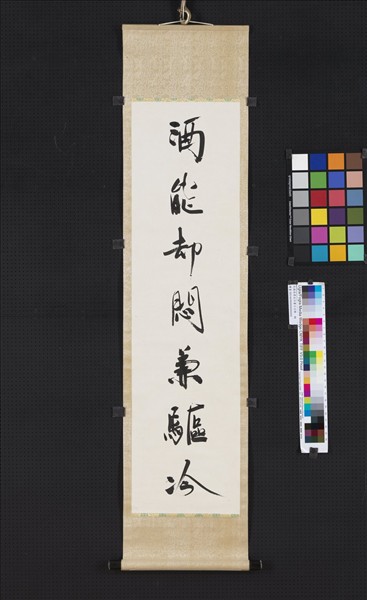 酒能却悶兼驅冷